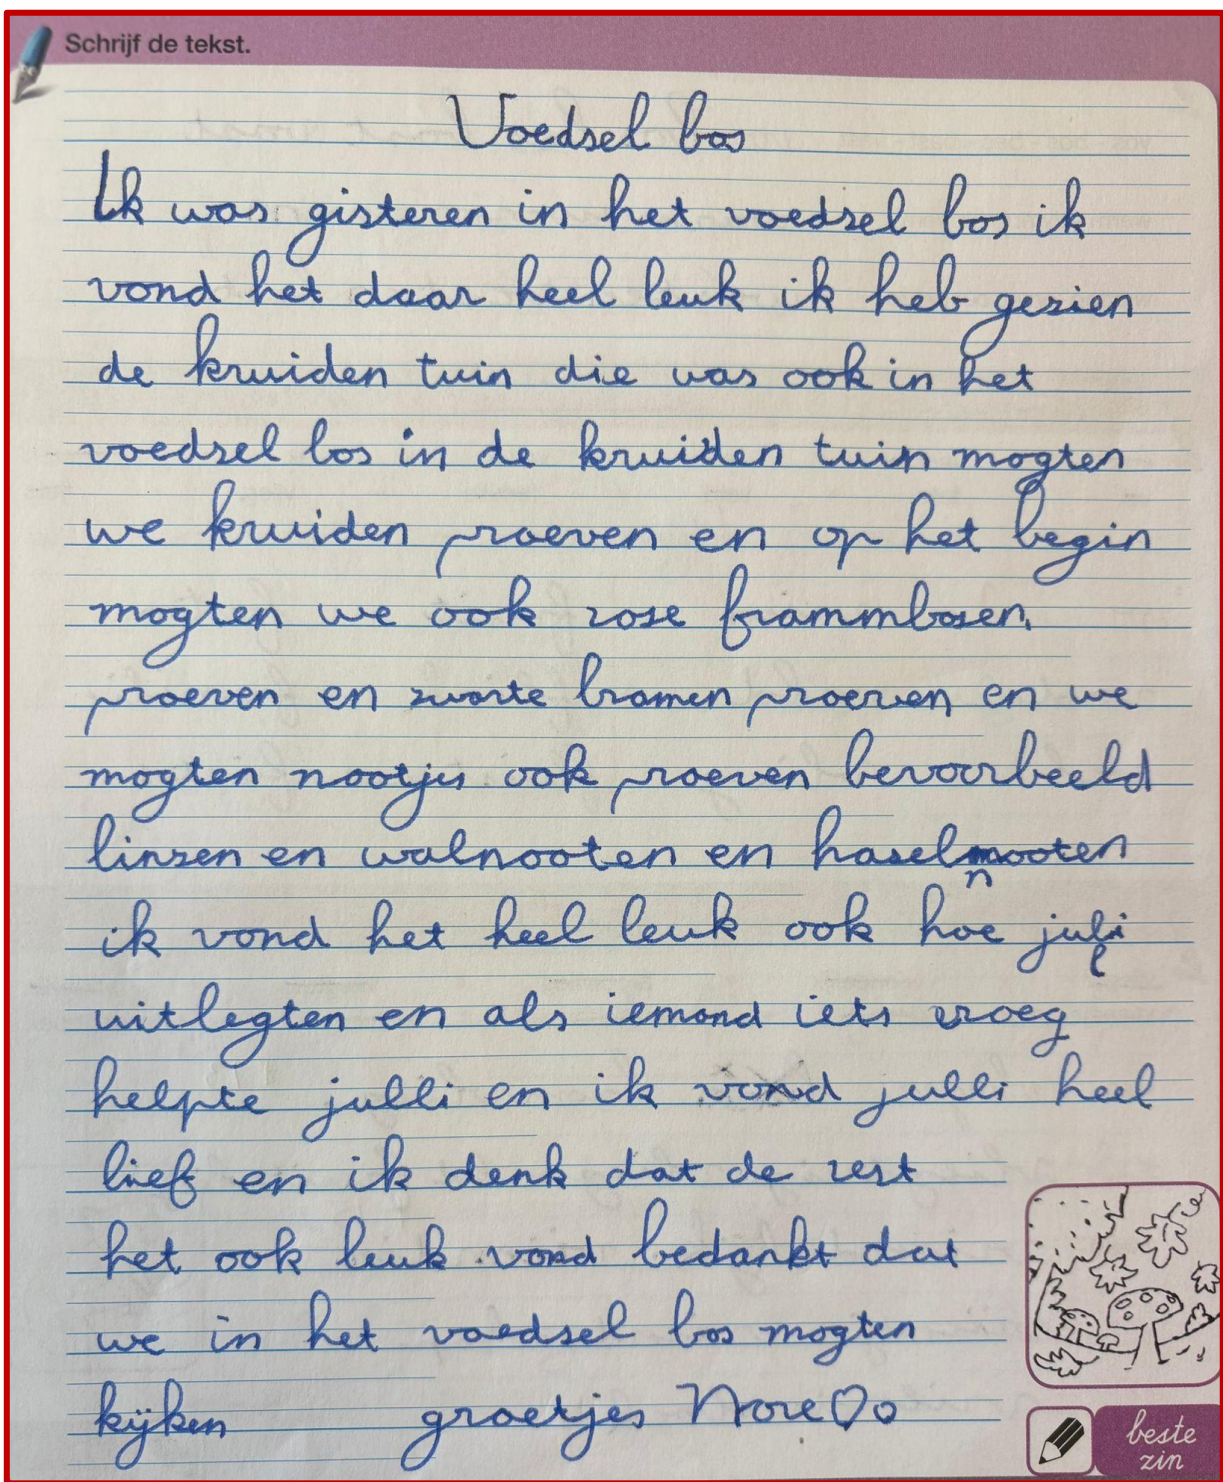 Schrijf de tekst.
Voedsel bos
Ik was gisteren in het voedsel bos ik
vond het daar heel leuk ik heb gezien
de kruiden tuin die was ook in het
voedsel bos in de kruiden tuin mogten
we kruiden proeven en op het begin
mogten we ook rose frammbosen
proeven en zwarte bramen proeven en we
mogten nootjes ook proeven bevoorbeeld
linzen en walnooten en haselnooten
ik vond het heel leuk ook hoe juli
uitlegten en als iemand iets vroeg
helpte julli en ik vond julli heel
lief en ik denk dat de rest
het ook leuk vond bedankt dat
we in het voedsel bos mogten
kijken groetjes Nore♡o
beste
zin